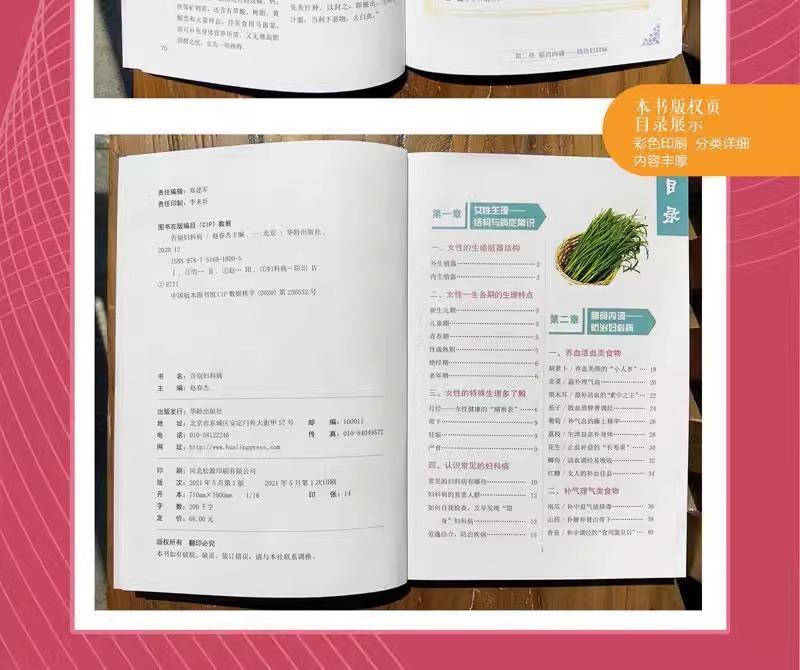 70
第二章 膳食内调——防治妇科病
本书版权页
目录展示
彩色印刷 分类详细
内容丰厚
责任编辑: 郑建军
责任印制: 李未圻
图书在版编目 (CIP) 数据
告别妇科病 / 赵春杰主编. —北京: 华龄出版社,
2020.12
ISBN 978-7-5169-1800-5
Ⅰ. ①告… Ⅱ. ①赵… Ⅲ. ①妇科病-防治 Ⅳ.
①R711
中国版本图书馆CIP数据核字 (2020) 第 256532 号
书 名: 告别妇科病
主 编: 赵春杰
出版发行: 华龄出版社
地 址: 北京市东城区安定门外大街甲 57 号 邮 编: 100011
电 话: 010-58122246 传 真: 010-84049572
网 址: http://www.hualingpress.com
印 刷: 河北松源印刷有限公司
版 次: 2021 年 5 月第 1 版 2021 年 5 月第 1 次印刷
开 本: 710mm×1000mm 1/16 印 张: 14
字 数: 200 千字
定 价: 68.00 元
版权所有 翻印必究
本书如有破损、缺页、装订错误, 请与本社联系调换。
目录
第一章 女性生理——
结构与病症常识
一、女性的生殖脏器结构
外生殖器 2
内生殖器 3
二、女性一生各期的生理特点
新生儿期
儿童期
青春期
性成熟期
绝经期
老年期
三、女性的特殊生理多了解
月经——女性健康的“晴雨表”
带下
妊娠
产育
四、认识常见的妇科病
常见的妇科病有哪些 10
妇科病的易患人群 12
如何自我检查, 及早发现“隐
身”妇科病 13
劳逸结合, 防治疾病 15
1
第二章 膳食内调——
防治妇科病
一、养血活血类食物
胡萝卜 / 养血美颜的“小人参” 18
韭菜 / 温补理气血 20
黑木耳 / 滋补活血的“素中之王” 22
茄子 / 散血消肿善调经 24
葡萄 / 补气血的藤上精华 26
荔枝 / 生津益血补身体 28
花生 / 止血补益的“长寿果” 30
鲫鱼 / 活血调经易吸收 32
红糖 / 女人的补血佳品 34
二、补气理气类食物
南瓜 / 补中益气能排毒 36
山药 / 补脾补肾治带下 38
香菇 / 和中调经的“食用菌皇后” 40